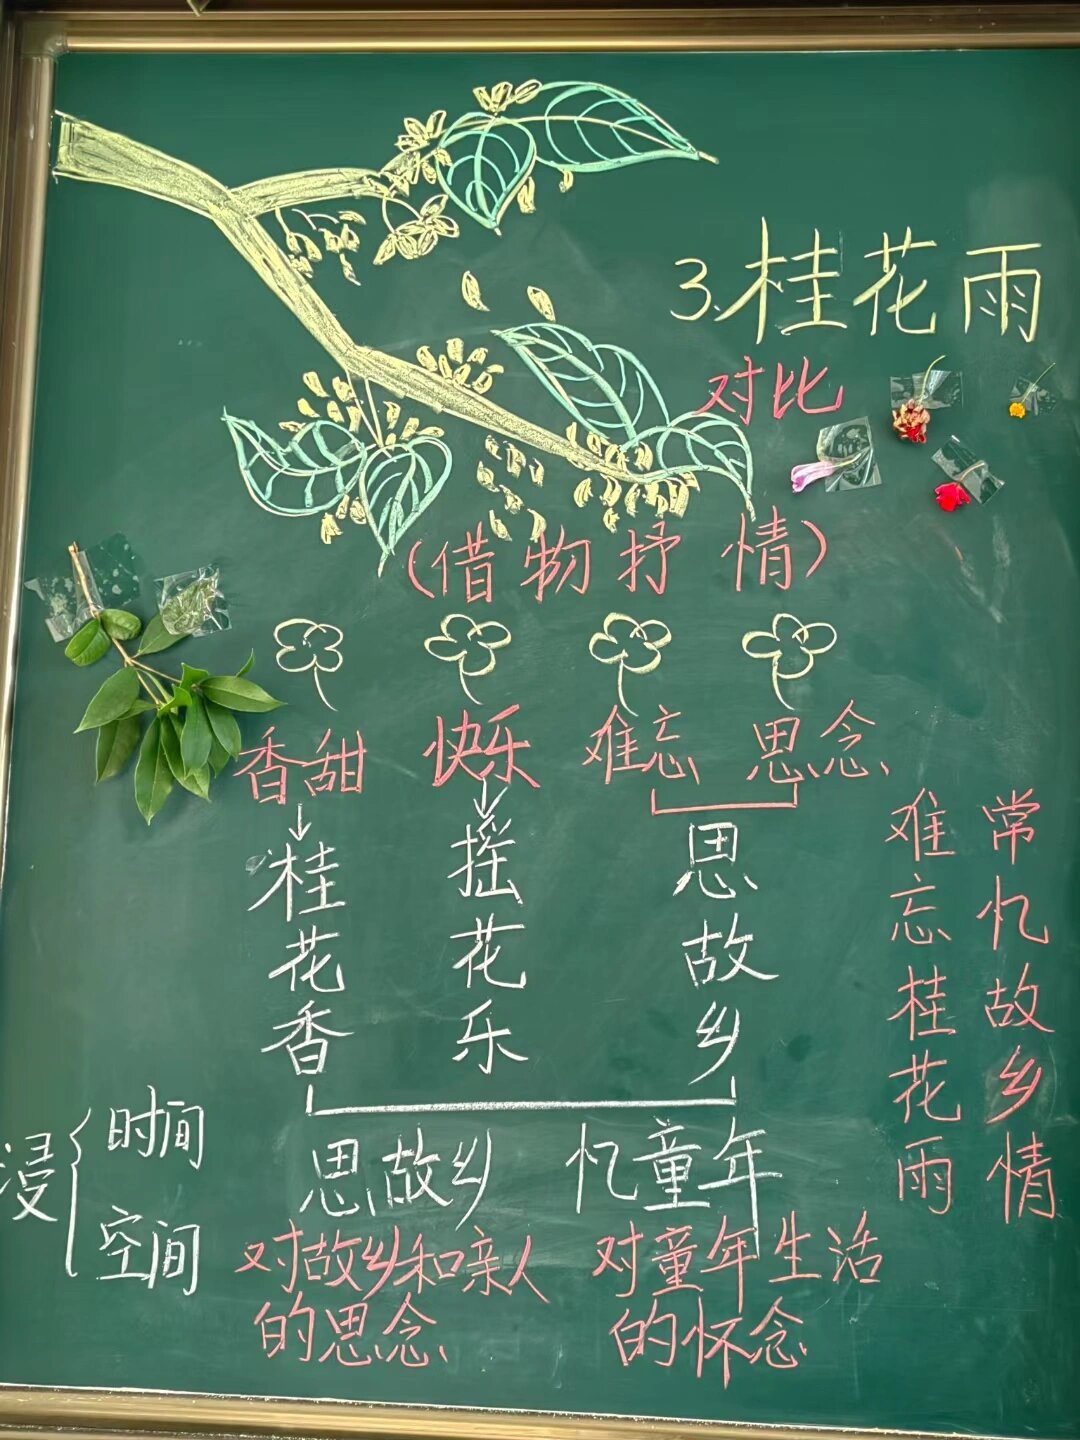 3.桂花雨
对比
(借物抒情)
香甜 快乐 难忘 思念
桂花香
摇花乐
思故乡
难忘桂花雨
常忆故乡情
浸
时间
空间
思故乡 忆童年
对故乡和亲人
的思念
对童年生活
的怀念